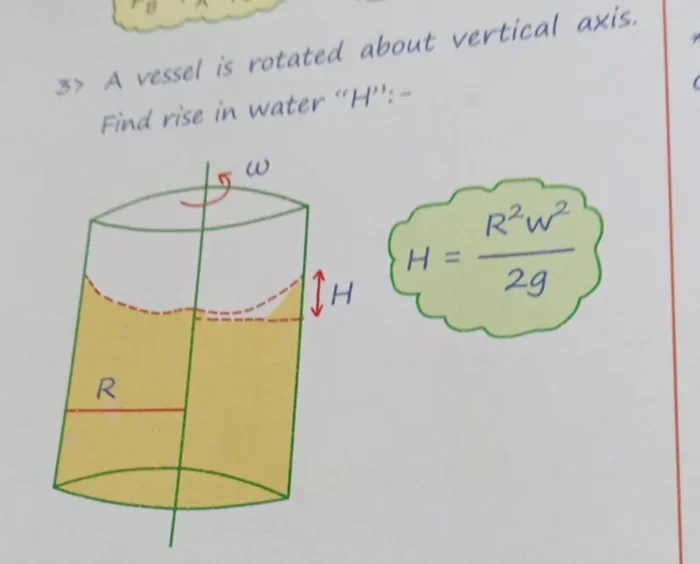 3> A vessel is rotated about vertical axis.
Find rise in water "H":-
ω
H
H = R²w² / 2g
R